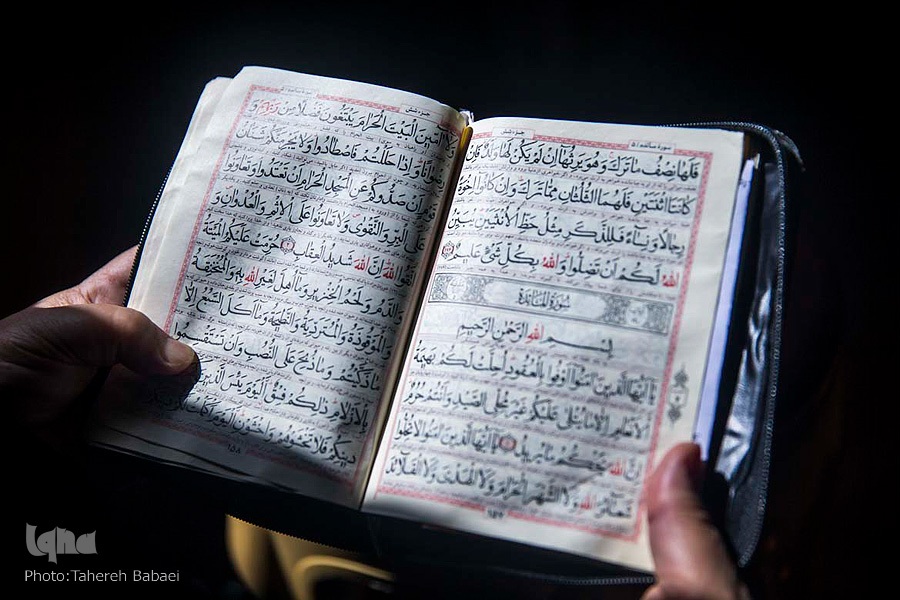 سورة مائده ٥
فَلَهَا نِصْفُ مَا تَرَكَ وَهُوَ يَرِثُهَا اِنْ لَمْ يَكُنْ لَهَا وَلَدٌ فَاِنْ
كَانَتَا اثْنَتَيْنِ فَلَهُمَا الثُّلُثَانِ مِمَّا تَرَكَ وَاِنْ كَانُوا اِخْوَةً
رِجَالًا وَنِسَاءً فَلِلذَّكَرِ مِثْلُ حَظِّ الْاُنْثَيَيْنِ يُبَيِّنُ
اللهُ لَكُمْ اَنْ تَضِلُّوا وَاللهُ بِكُلِّ شَيْءٍ عَلِيمٌ
سُورَةُ الْمَائِدَةِ
بِسْمِ اللهِ الرَّحْمٰنِ الرَّحِيمِ
يَا اَيُّهَا الَّذِينَ آمَنُوا اَوْفُوا بِالْعُقُودِ اُحِلَّتْ لَكُمْ بَهِيمَةُ
الْاَنْعَامِ اِلَّا مَا يُتْلٰى عَلَيْكُمْ غَيْرَ مُحِلِّي الصَّيْدِ وَاَنْتُمْ حُرُمٌ
اِنَّ اللهَ يَحْكُمُ مَا يُرِيدُ يَا اَيُّهَا الَّذِينَ آمَنُوا لَا تُحِلُّوا
شَعَائِرَ اللهِ وَلَا الشَّهْرَ الْحَرَامَ وَلَا الْهَدْيَ وَلَا الْقَلَائِدَ
جزء شش
وَلَا آمِّينَ الْبَيْتَ الْحَرَامَ يَبْتَغُونَ فَضْلًا مِنْ رَبِّهِمْ وَ
رِضْوَانًا وَاِذَا حَلَلْتُمْ فَاصْطَادُوا وَلَا يَجْرِمَنَّكُمْ شَنَآنُ
قَوْمٍ اَنْ صَدُّوكُمْ عَنِ الْمَسْجِدِ الْحَرَامِ اَنْ تَعْتَدُوا وَتَعَاوَنُوا
عَلَى الْبِرِّ وَالتَّقْوٰى وَلَا تَعَاوَنُوا عَلَى الْاِثْمِ وَالْعُدْوَانِ وَ
اتَّقُوا اللهَ اِنَّ اللهَ شَدِيدُ الْعِقَابِ حُرِّمَتْ عَلَيْكُمُ الْمَيْتَةُ
وَالدَّمُ وَلَحْمُ الْخِنْزِيرِ وَمَا اُهِلَّ لِغَيْرِ اللهِ بِهِ وَالْمُنْخَنِقَةُ
وَالْمَوْقُوذَةُ وَالْمُتَرَدِّيَةُ وَالنَّطِيحَةُ وَمَا اَكَلَ السَّبُعُ اِلَّا
مَا ذَكَّيْتُمْ وَمَا ذُبِحَ عَلَى النُّصُبِ وَاَنْ تَسْتَقْسِمُوا
بِالْاَزْلَامِ ذٰلِكُمْ فِسْقٌ اَلْيَوْمَ يَئِسَ الَّذِينَ
دِينِكُمْ فَلَا تَخْشَوْهُمْ وَاخْشَوْنِ اَلْيَوْمَ اَكْمَلْتُ
iqna
Photo:Tahereh Babaei